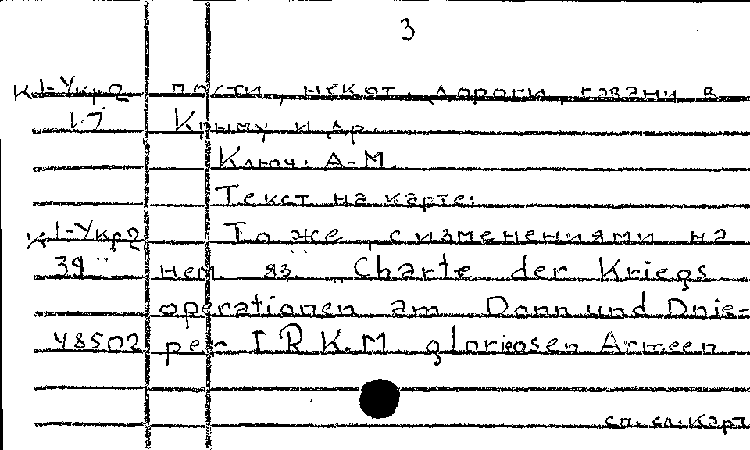 3
К 1-Укр2 пости, некот. дороги, гавани в
1-7 Крыму и др.
Ключ: А-М.
Текст на карте:
К 1-Укр2 То же, с изменениями на
39 нем. яз. Charte der Kriegs
operationen am Donn und Dnie-
48502 per I R K.M. gloriosen Armeen
сп. сл. Карт